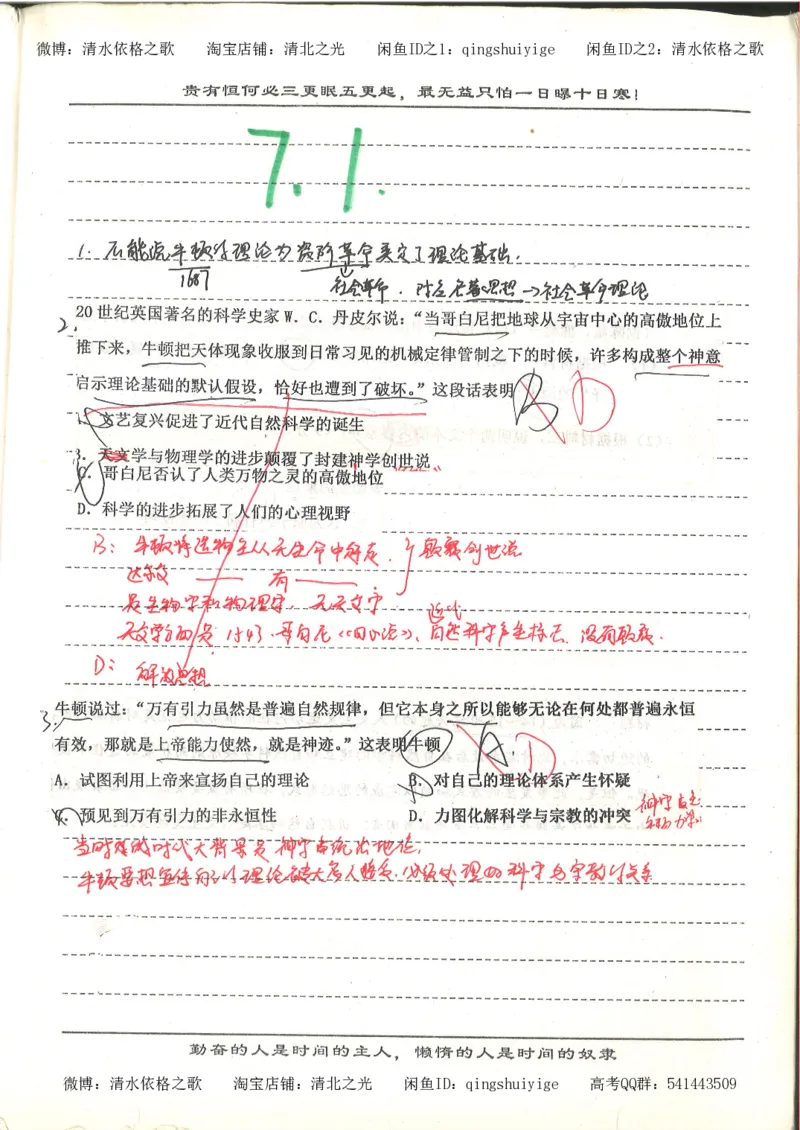 微博：清水依格之歌 淘宝店铺：清北之光 闲鱼ID之1：qingshuiyige 闲鱼ID之2：清水依格之歌
贵有恒何必三更眠五更起，最无益只怕一日曝十日寒！
7.1.
1. 不能说牛顿力学理论为资阶革命奠定了理论基础.
1687 社会革命. 对应启蒙思想→社会革命理论
2. 20 世纪英国著名的科学史家 W．C．丹皮尔说：“当哥白尼把地球从宇宙中心的高傲地位上
推下来，牛顿把天体现象收服到日常习见的机械定律管制之下的时候，许多构成整个神意
启示理论基础的默认假设，恰好也遭到了破坏。”这段话表明 B D
文艺复兴促进了近代自然科学的诞生
天文学与物理学的进步颠覆了封建神学创世说
哥白尼否认了人类万物之灵的高傲地位
D．科学的进步拓展了人们的心理视野
B： 牛顿将造物主从无生命中解走 } 颠覆创世说
达尔文 —— 有 ——
是生物学和物理学，无天文学
天文学方面是1543.哥白尼《》，近代自然科学产生标志，没有颠覆.
D： 解放思想
3. 牛顿说过：“万有引力虽然是普遍自然规律，但它本身之所以能够无论在何处都普遍永恒
有效，那就是上帝能力使然，就是神迹。”这表明牛顿 A D
A．试图利用上帝来宣扬自己的理论 B．对自己的理论体系产生怀疑
预见到万有引力的非永恒性 D．力图化解科学与宗教的冲突 神学
当时时代大背景是神学占统治地位，
牛顿要想宣传自己理论被大多人接受，必须处理好科学与宗教的关系
勤奋的人是时间的主人，懒惰的人是时间的奴隶
微博：清水依格之歌 淘宝店铺：清北之光 闲鱼ID：qingshuiyige 高考QQ群：541443509